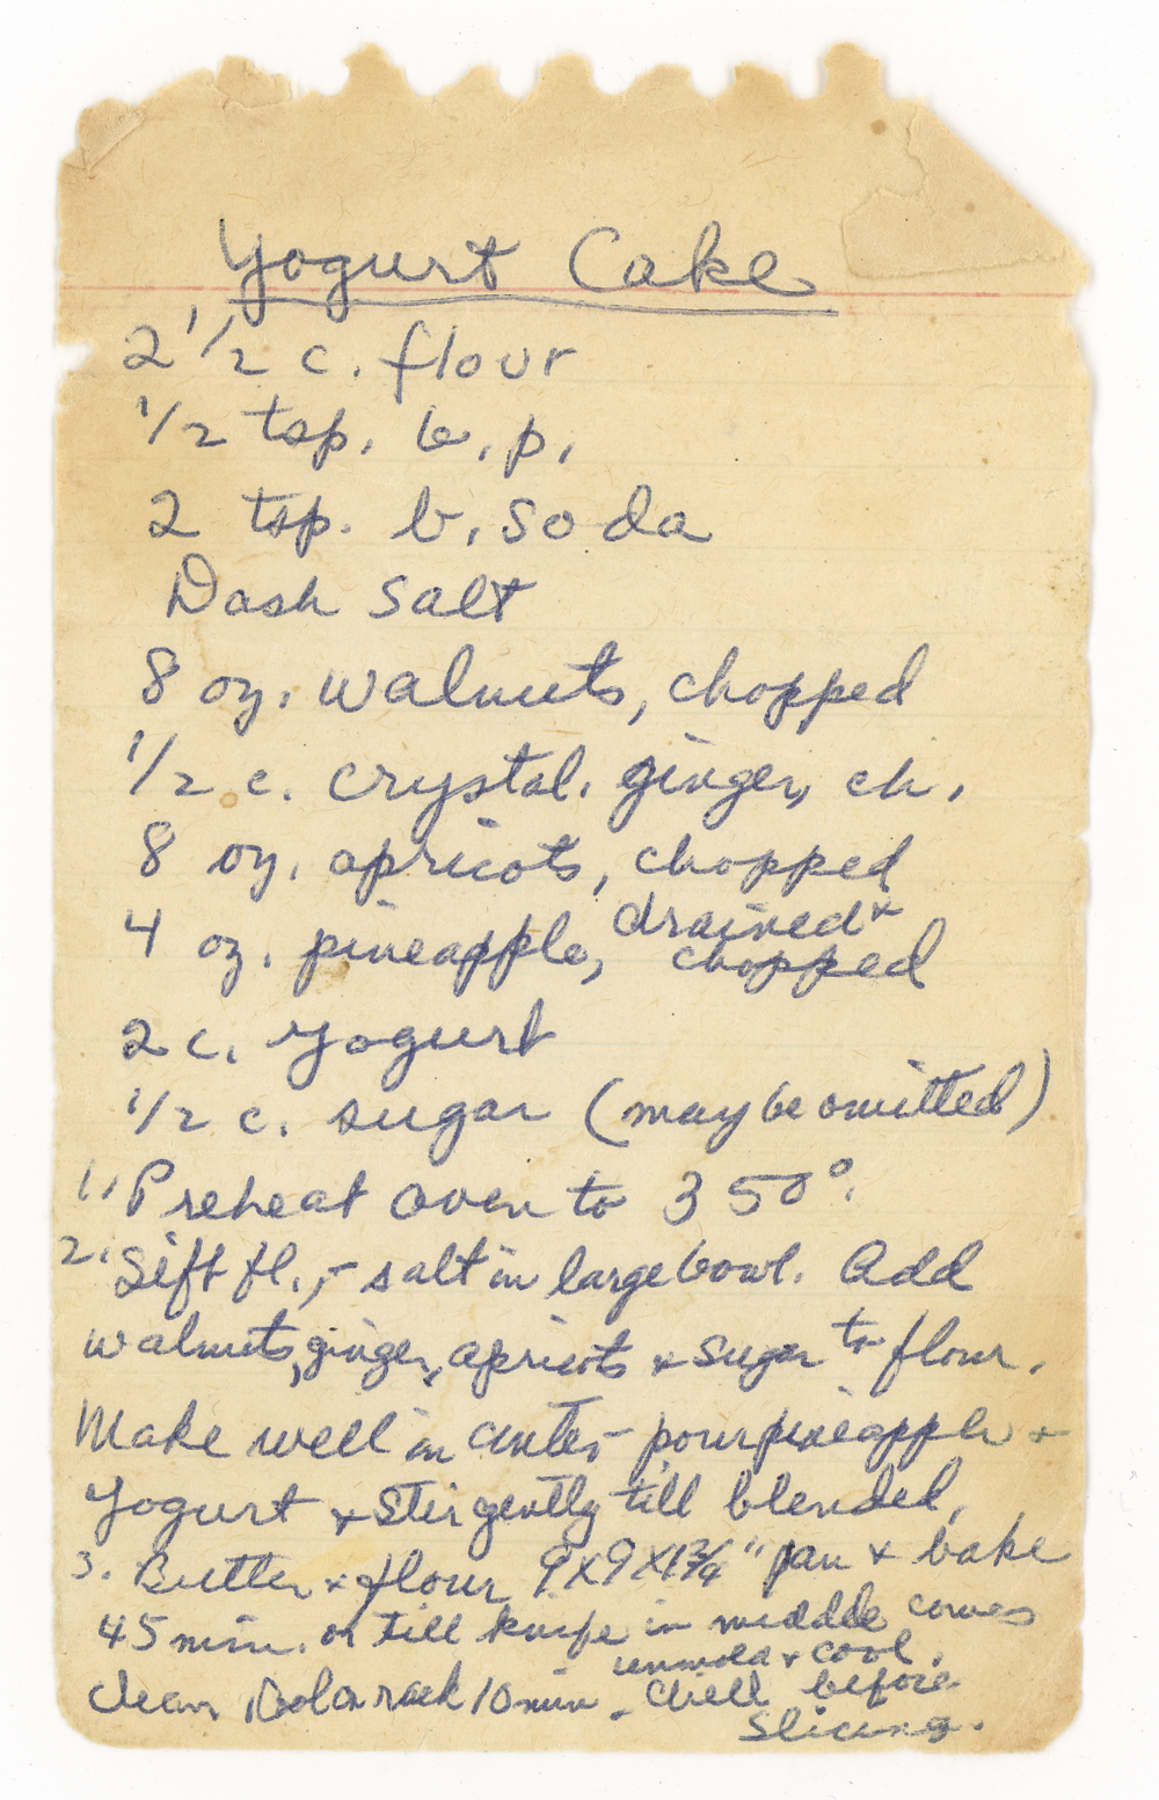 Yogurt Cake
2 1/2 c. flour
1/2 tsp. b. p.
2 tsp. b. soda
Dash salt
8 oz. walnuts, chopped
1/2 c. crystal. ginger, ch.
8 oz. apricots, chopped
4 oz. pineapple, drained +
chopped
2 c. yogurt
1/2 c. sugar (may be omitted)
1. Preheat oven to 350°.
2. Sift fl., - salt in large bowl. Add
walnuts, ginger, apricots + sugar to flour.
Make well in center - pour pineapple +
yogurt + stir gently till blended.
3. Butter + flour 9x9x1 3/4" pan + bake
45 min. or till knife in middle comes
clean. Cool on rack 10 min. unmold + cool.
Chill before
slicing.